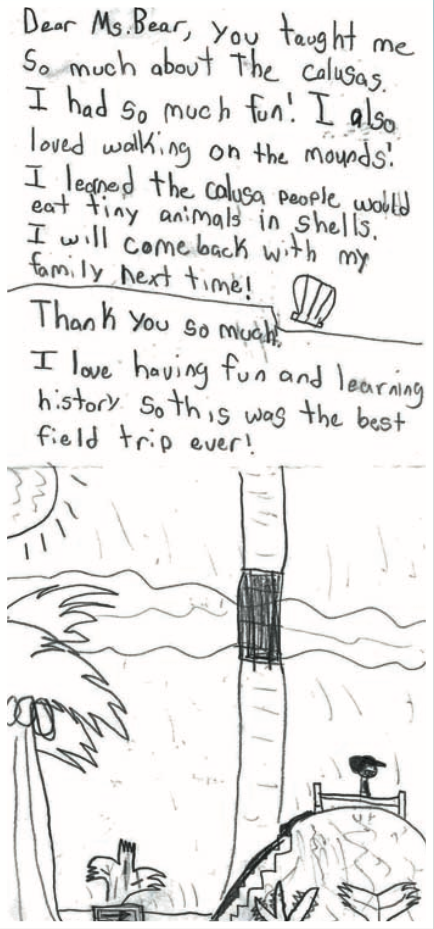 Dear Ms. Bear, you taught me
so much about the calusas.
I had so much fun! I also
loved walking on the mounds!
I learned the calusa people would
eat tiny animals in shells.
I will come back with my
family next time!
Thank you so much!
I love having fun and learning
history so this was the best
field trip ever!